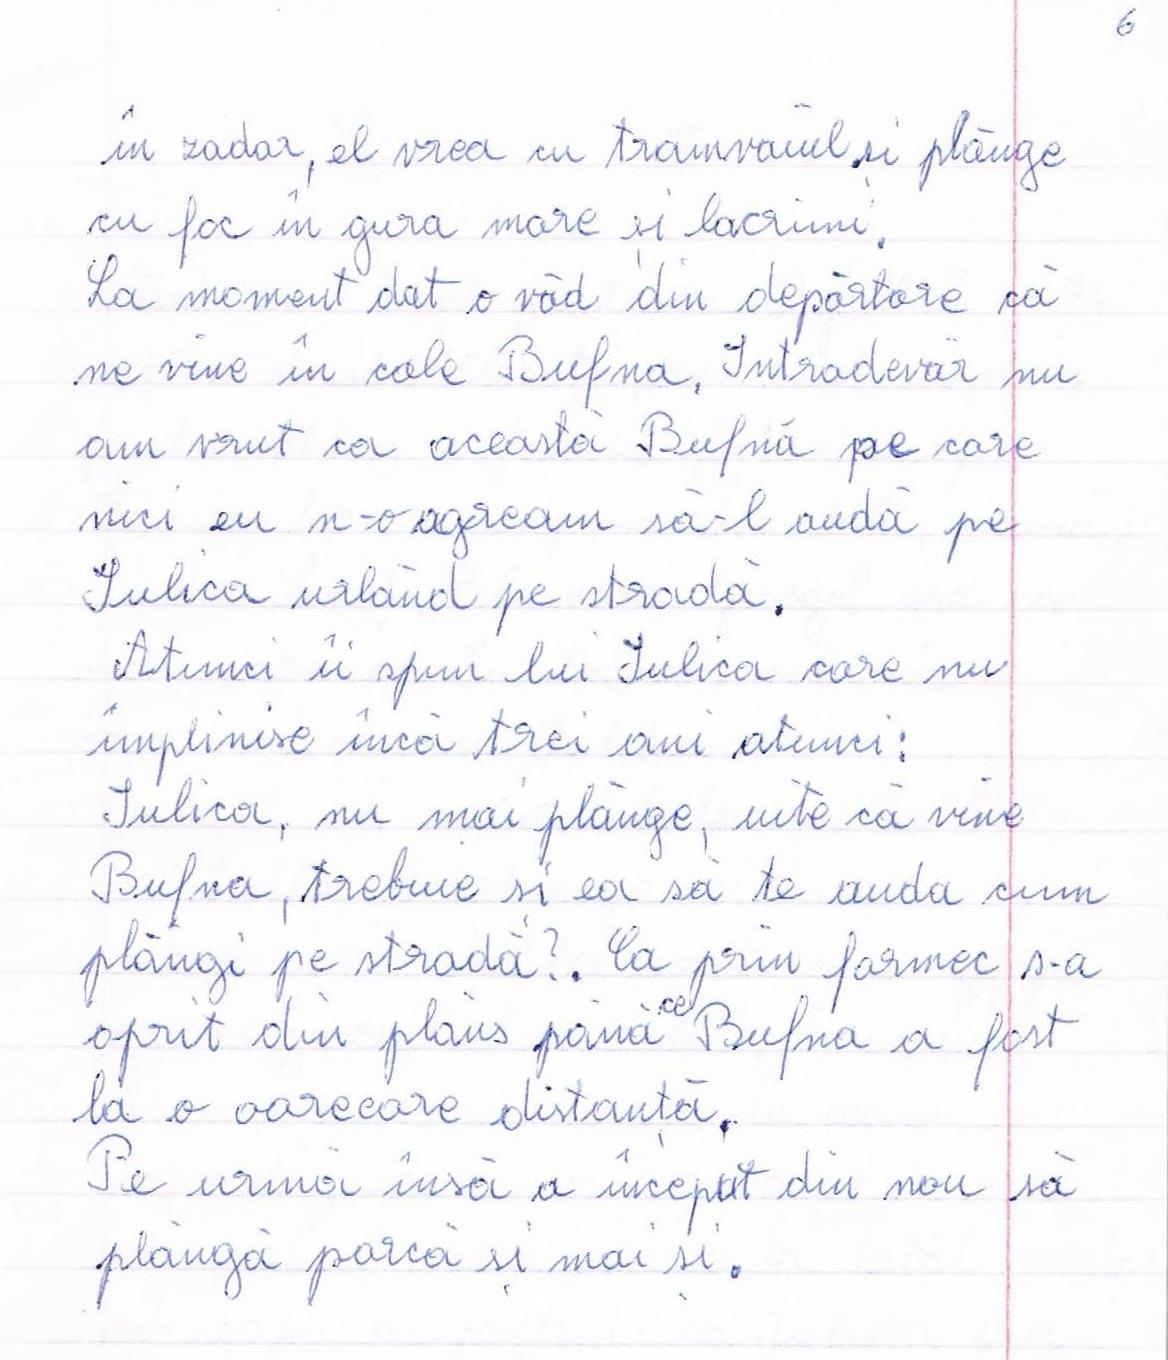 6
în zadar, el vrea cu tramvaiul și plânge
cu foc în gura mare și lacrimi.
La moment dat o văd din depărtare că
ne vine în cale Bufna. Intradevăr nu
am vrut ca această Bufnă pe care
nici eu n-o agream să-l audă pe
Iulica urlând pe stradă.
Atunci îi spun lui Iulica care nu
împlinise încă trei ani atunci:
Iulica, nu mai plânge, uite că vine
Bufna, trebuie și ea să te auda cum
plângi pe stradă?. Ca prin farmec s-a
oprit din plâns până ce Bufna a fost
la o oarecare distanță.
Pe urmă însă a început din nou să
plângă parcă și mai și.